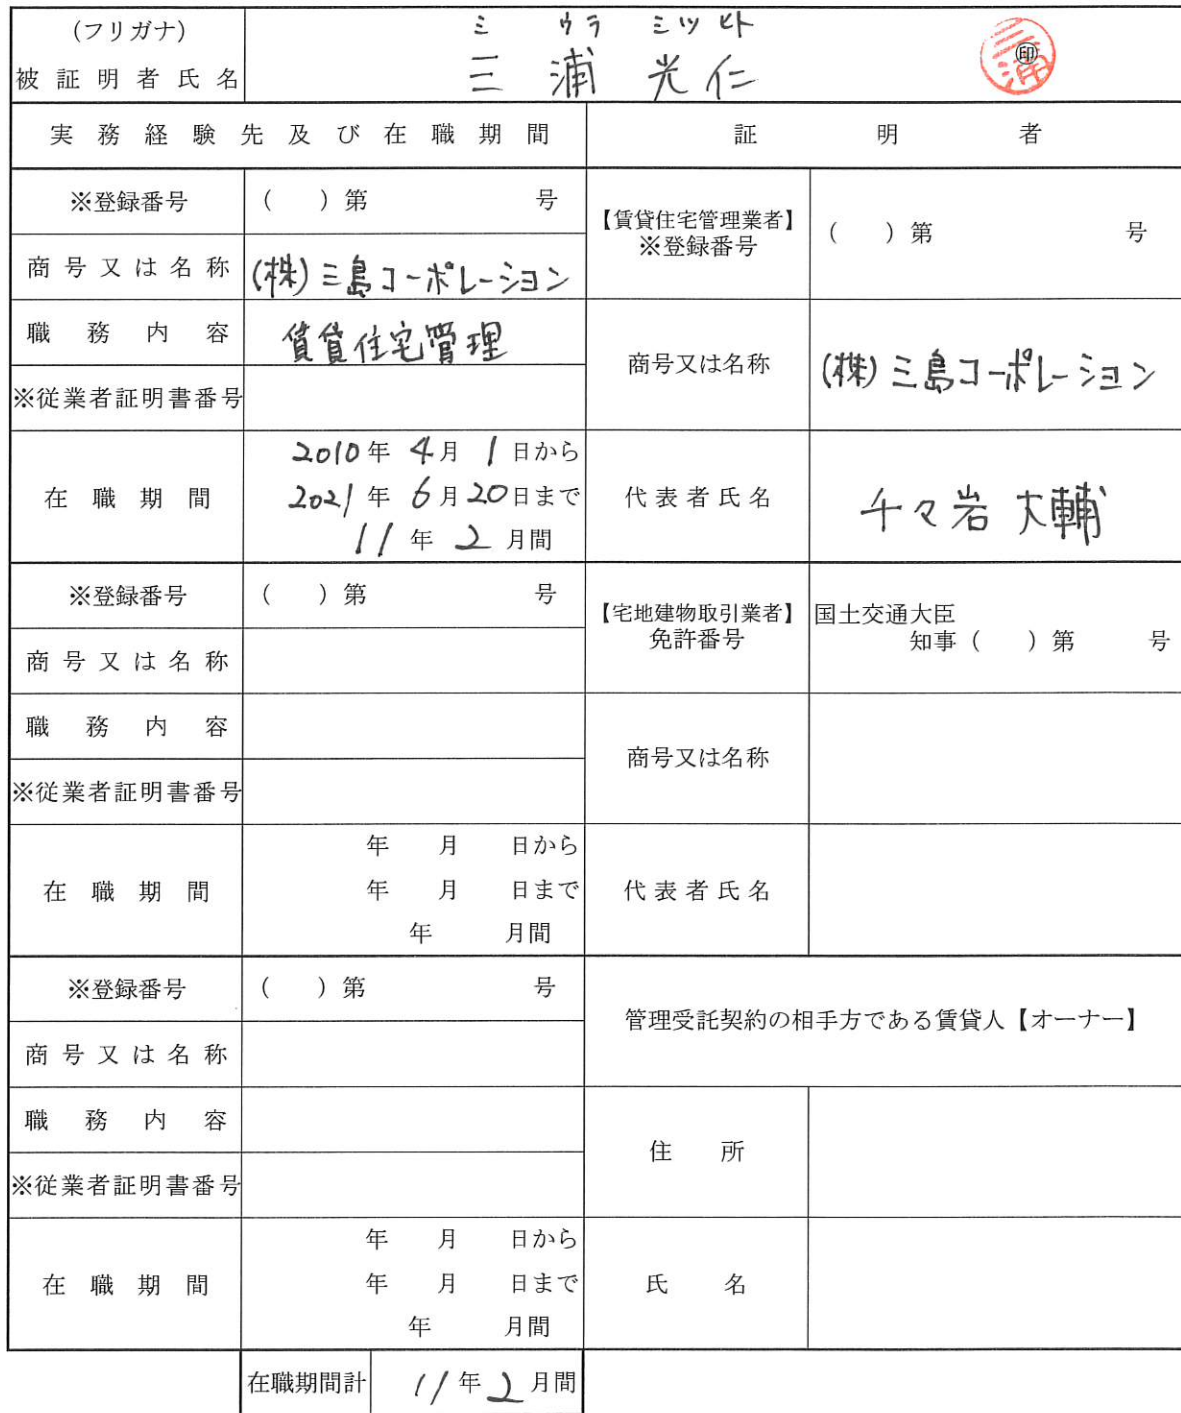 (フリガナ) ミウラ ミツヒト
被証明者氏名 三浦 光仁 ㊞ 三浦
実務経験先及び在職期間 証明者
※登録番号 ( )第 号
【賃貸住宅管理業者】
※登録番号 ( )第 号
商号又は名称 (株)三島コーポレーション
職務内容 賃貸住宅管理
商号又は名称 (株)三島コーポレーション
※従業者証明書番号
在職期間
2010年 4月 1日から
2021年 6月 20日まで
11年 2月間
代表者氏名 千々岩 大輔
※登録番号 ( )第 号
【宅地建物取引業者】
免許番号
国土交通大臣
知事( )第 号
商号又は名称
職務内容
商号又は名称
※従業者証明書番号
在職期間
年 月 日から
年 月 日まで
年 月間
代表者氏名
※登録番号 ( )第 号
管理受託契約の相手方である賃貸人【オーナー】
商号又は名称
職務内容
住所
※従業者証明書番号
在職期間
年 月 日から
年 月 日まで
年 月間
氏名
在職期間計 11年 2月間